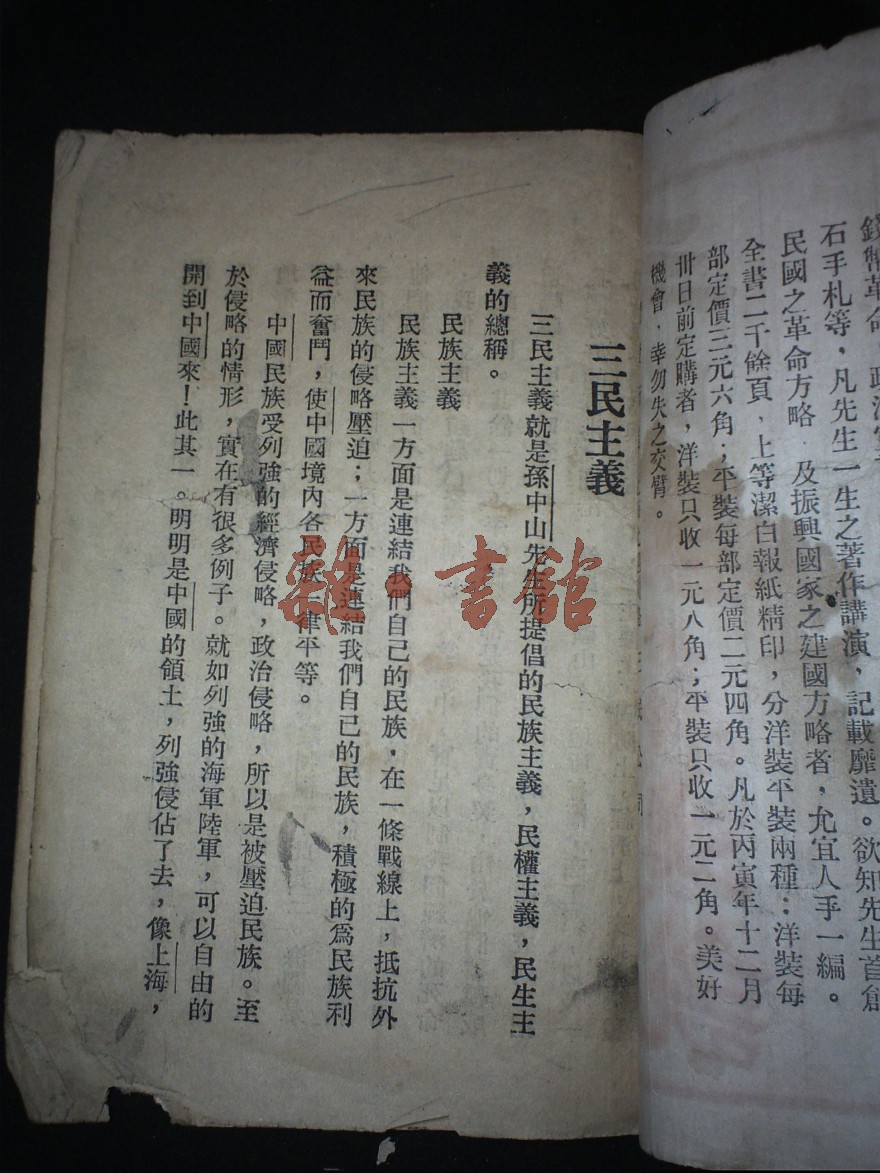 錢幣革命
石手札等，凡先生一生之著作講演，記載靡遺。欲知先生首創
民國之革命方略，及振興國家之建國方略者，允宜人手一編。
全書二千餘頁，上等潔白報紙精印，分洋裝平裝兩種：洋裝每
部定價三元六角；平裝每部定價二元四角。凡於丙寅年十二月
卅日前定購者，洋裝只收一元八角；平裝只收一元二角。美好
機會，幸勿失之交臂。
三民主義
三民主義就是孫中山先生所提倡的民族主義，民權主義，民生主
義的總稱。
民族主義
民族主義一方面是連結我們自己的民族，在一條戰線上，抵抗外
來民族的侵略壓迫；一方面是連結我們自己的民族，積極的爲民族利
益而奮鬥，使中國境內各民族一律平等。
中國民族受列強的經濟侵略，政治侵略，所以是被壓迫民族。至
於侵略的情形，實在有很多例子。就如列強的海軍陸軍，可以自由的
開到中國來！此其一。明明是中國的領土，列強侵佔了去，像上海，
雜·書館